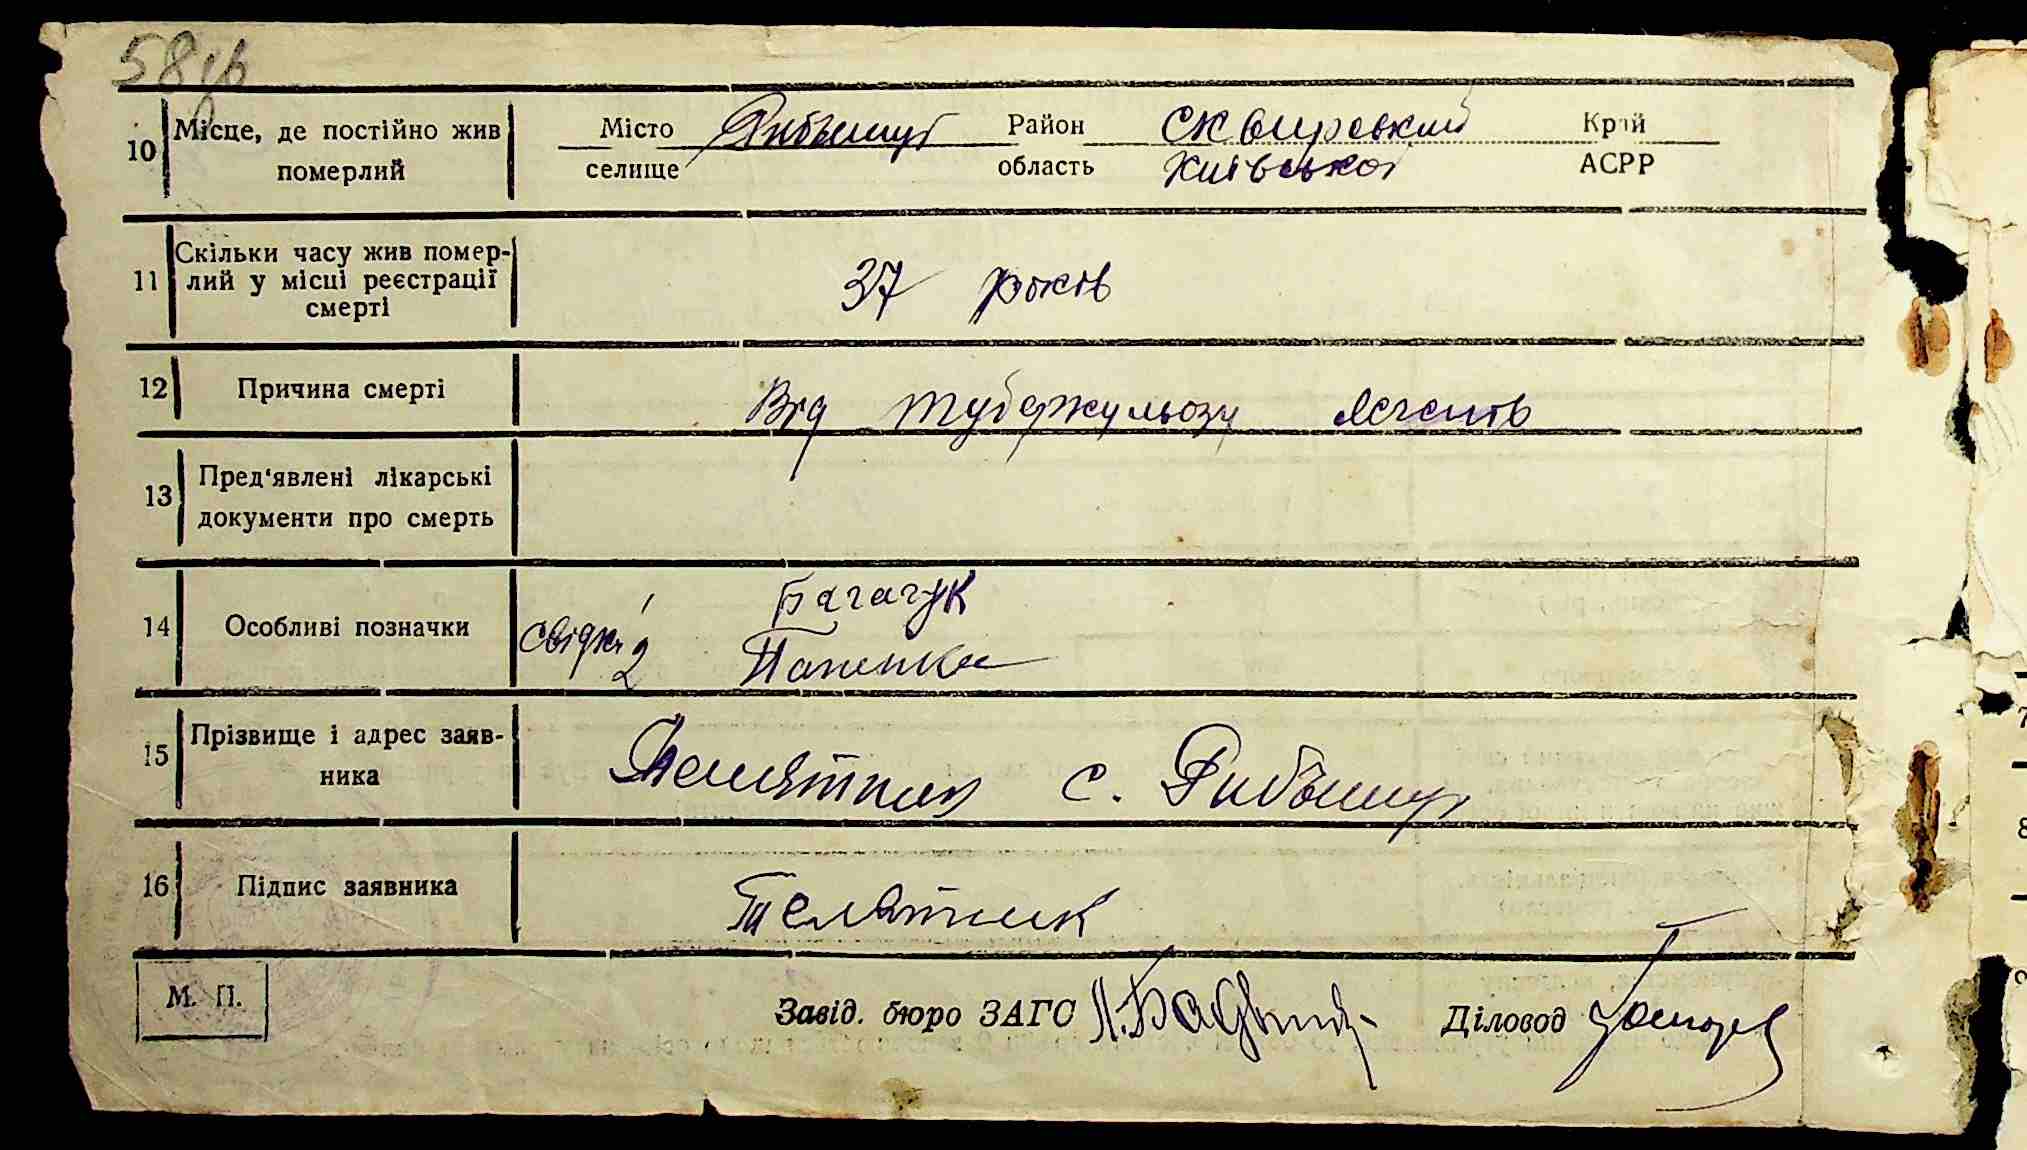 58 зв
10 Місце, де постійно жив померлий
Місто селище Район область Сквирський Київської Край АСРР
11 Скільки часу жив помер-
лий у місці реєстрації
смерті
37 років
12 Причина смерті
Від туберкульозу легень
13 Пред'явлені лікарські
документи про смерть
14 Особливі позначки
свідки 1 Багачук
2
15 Прізвище і адрес заяв-
ника
Телятник с.
16 Підпис заявника
Телятник
М. П.
Завід. бюро ЗАГС Діловод